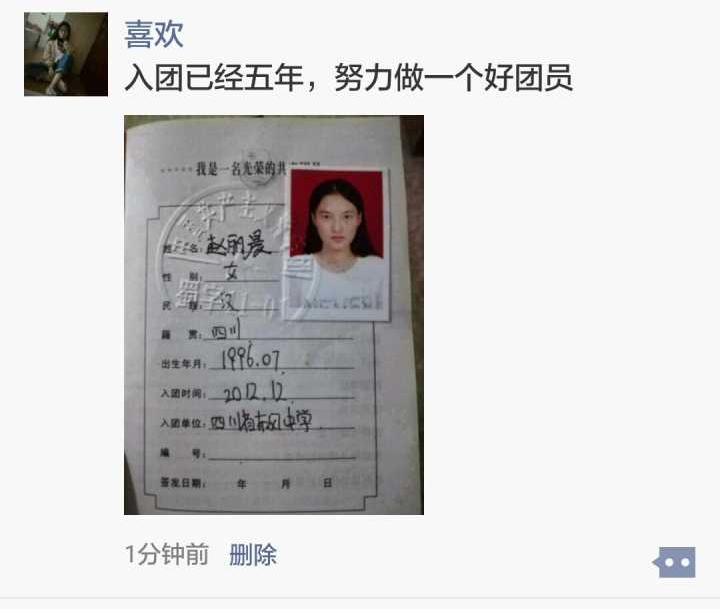 喜欢
入团已经五年，努力做一个好团员
我是一名光荣的共
姓 名：赵丽
性 别：女
民 族：汉
籍 贯：四川
出生年月：1996.07.
入团时间：2012.12.
入团单位：四川省 中学
编 号：
签发日期： 年 月 日
1分钟前 删除